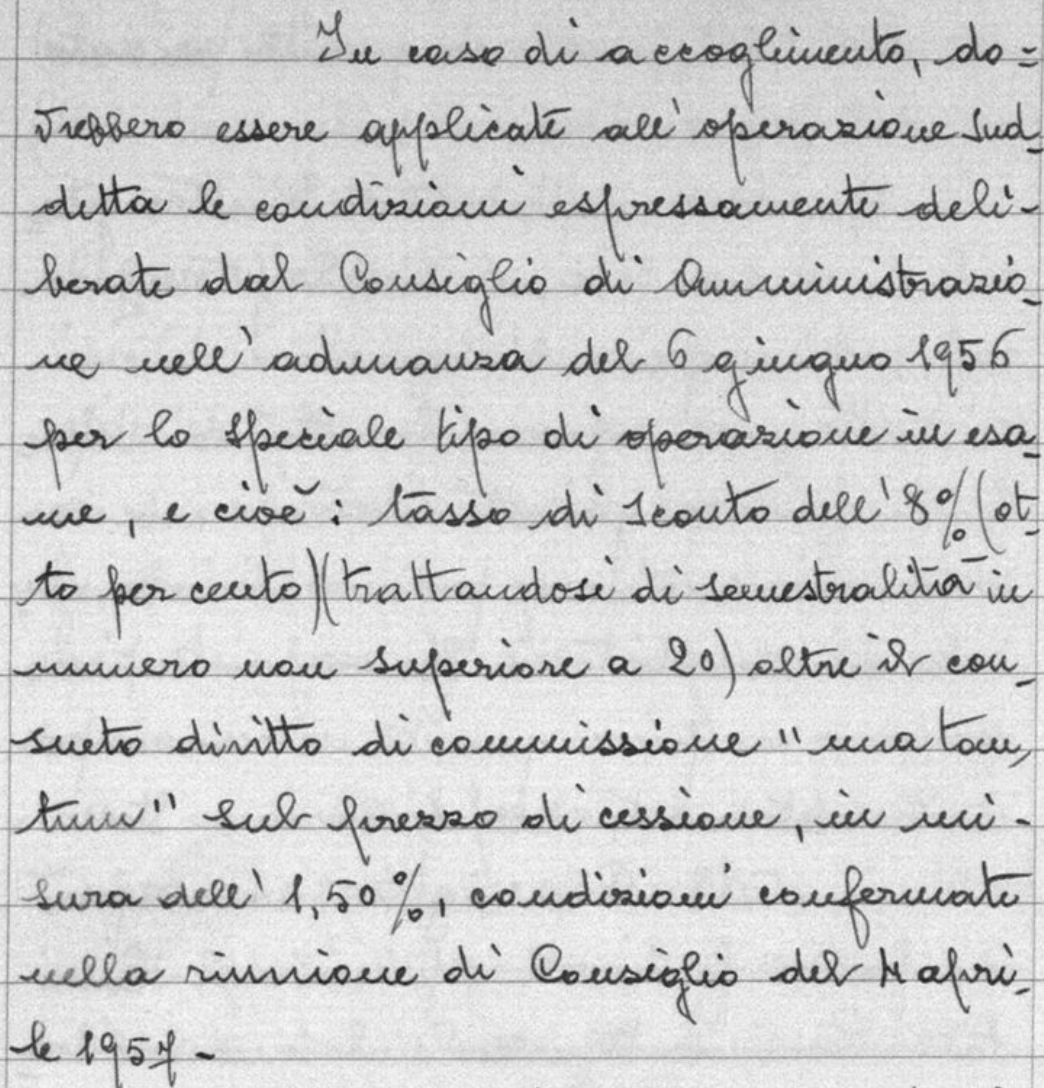 In caso di accoglimento, do=
vrebbero essere applicate all'operazione sud_
detta le condizioni espressamente deli-
berate dal Consiglio di Amministrazio_
ne nell'adunanza del 6 giugno 1956
per lo speciale tipo di operazione in esa_
me, e cioè: tasso di sconto dell'8% (ot_
to per cento) (trattandosi di semestralità in
numero non superiore a 20) oltre il con_
sueto diritto di commissione "una tan_
tum" sul prezzo di cessione, in mi-
sura dell'1,50%, condizioni confermate
nella riunione di Consiglio del 4 apri_
le 1957-